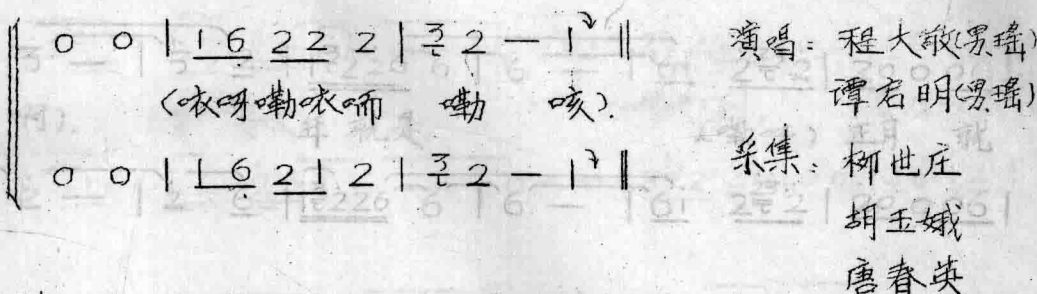 0 0 | 1 6 2 2 2 | 3 2 — 1 ‖
(咴呀嘞咴嗬 嘞 咳).
0 0 | 1 6 2 1 2 | 3 2 — 1 ‖
演唱：程大敬(男瑶)
谭启明(男瑶)
采集：柳世庄
胡玉娥
唐春英